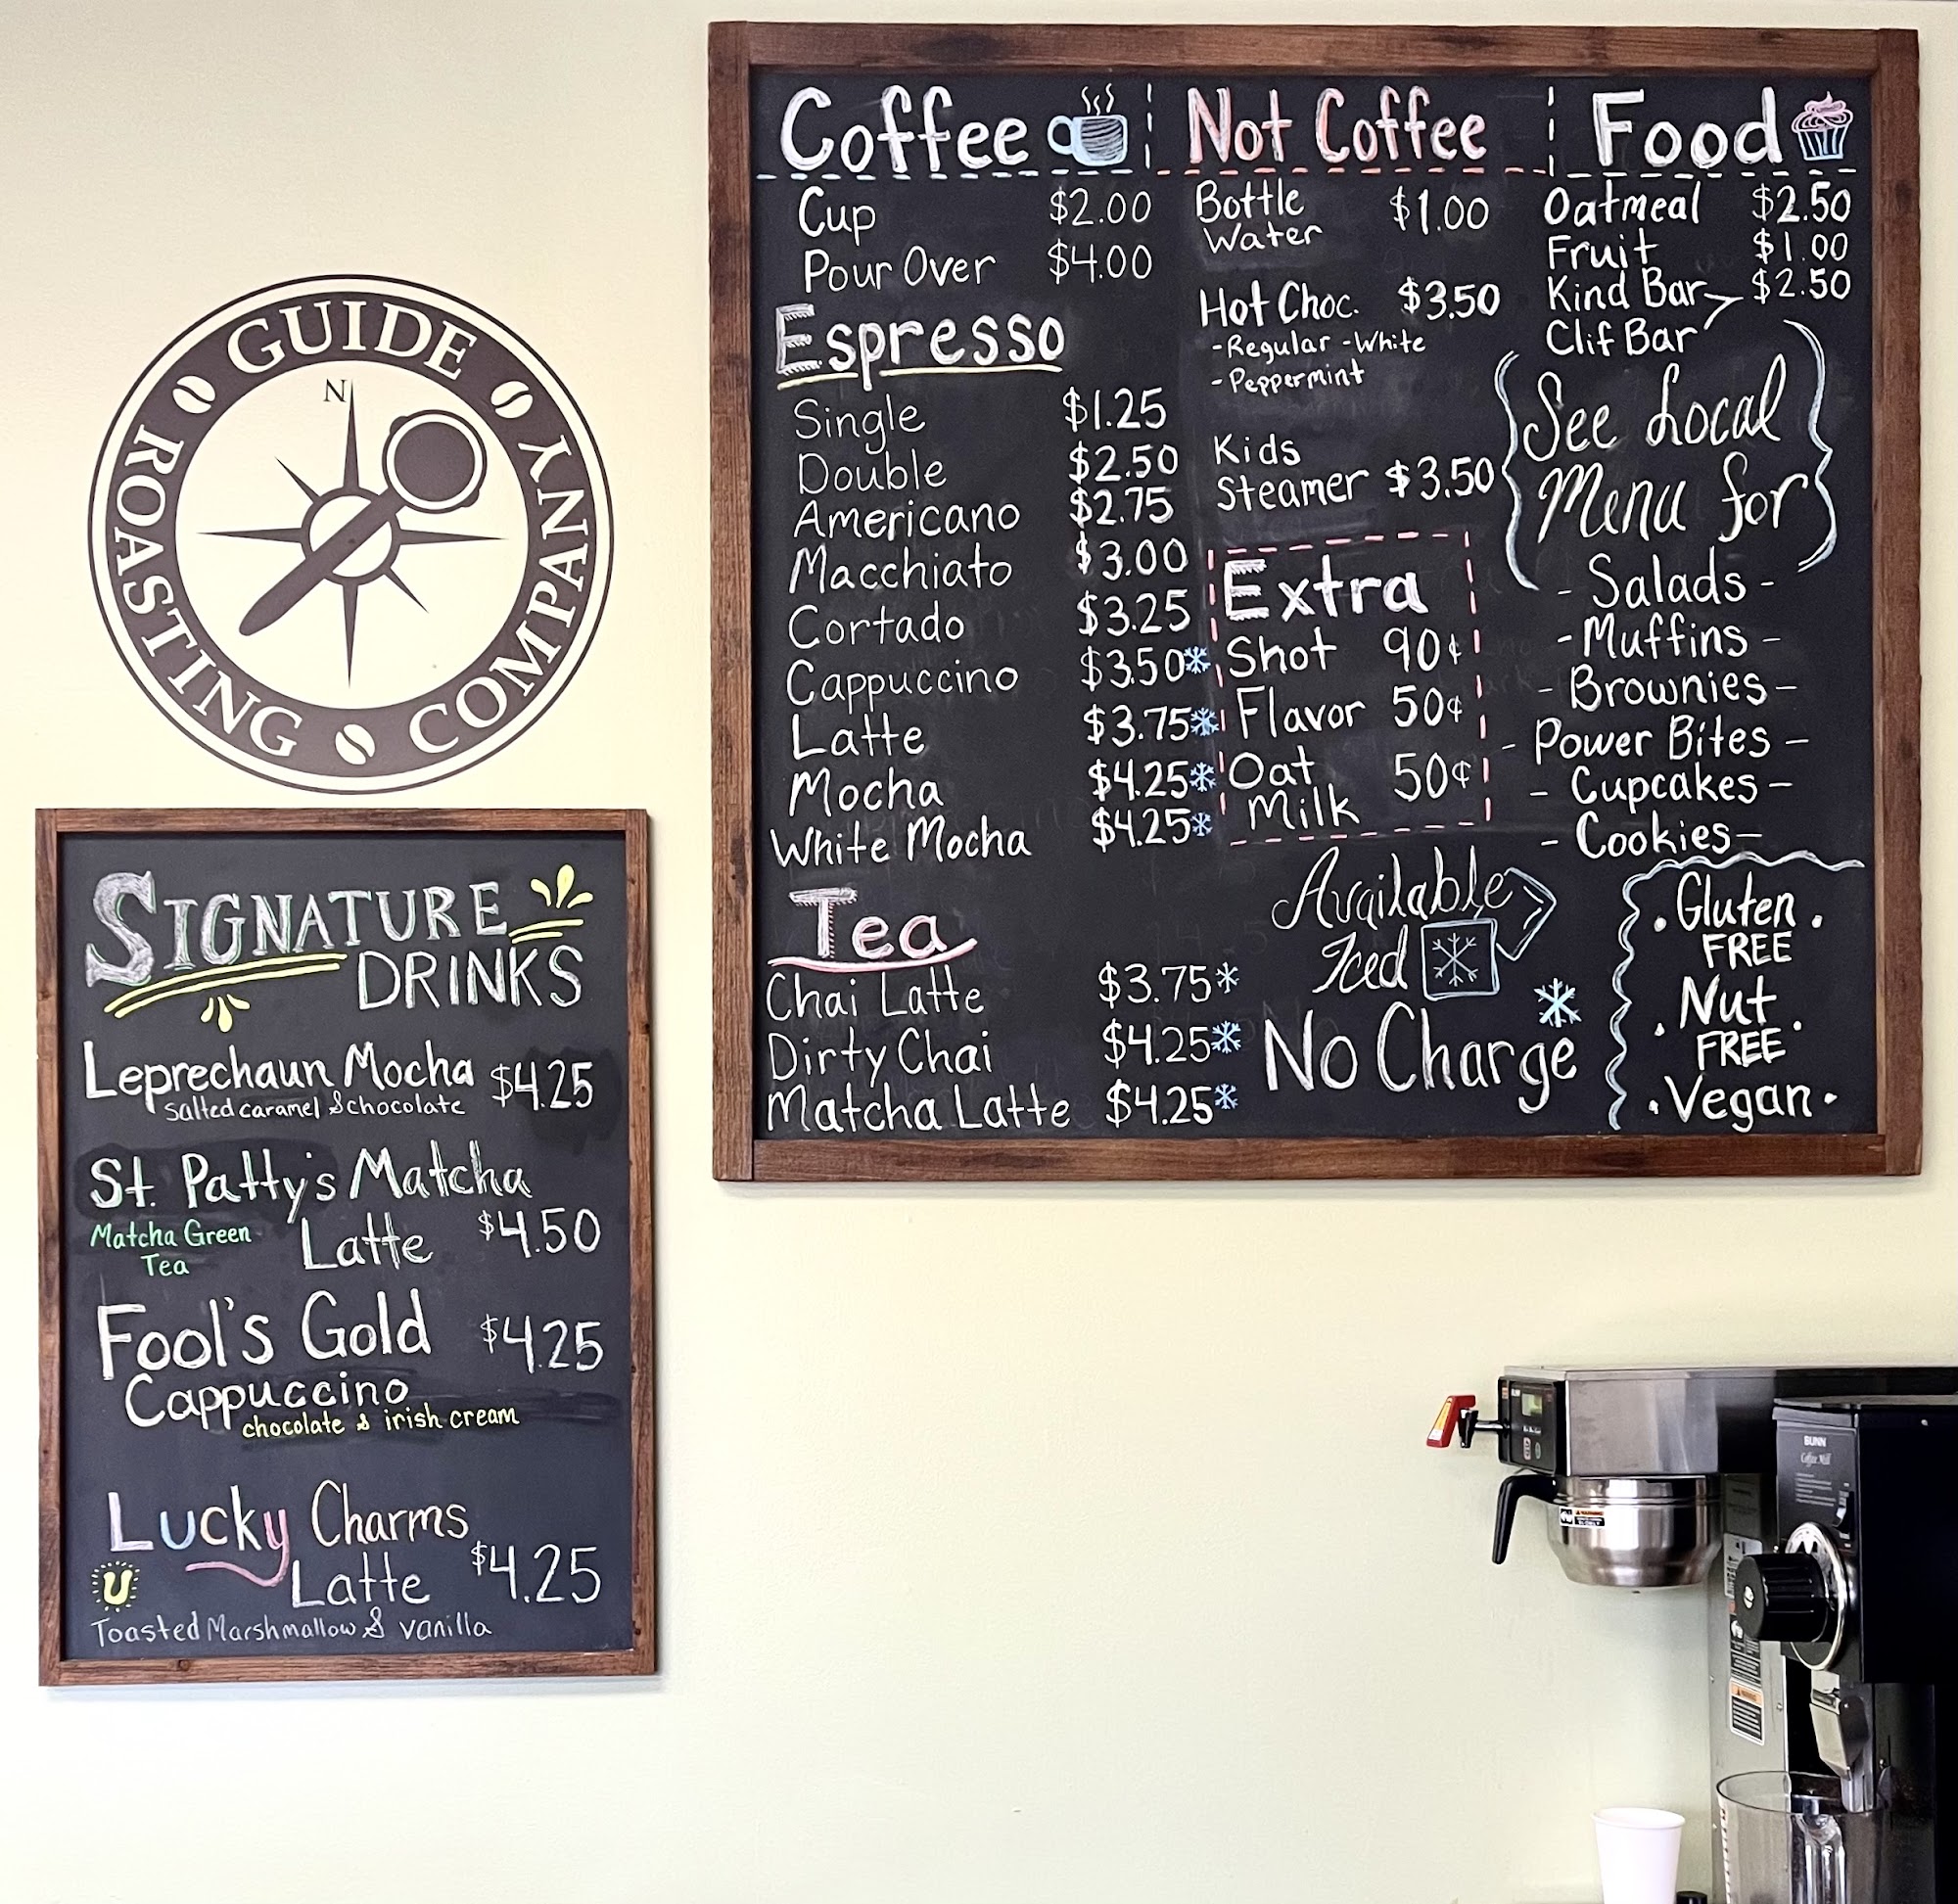 GUIDE
ROASTING COMPANY
N
SIGNATURE
DRINKS
Leprechaun Mocha $4.25
salted caramel & chocolate
St. Patty's Matcha
Matcha Green Latte $4.50
Tea
Fool's Gold $4.25
Cappuccino
chocolate & irish cream
Lucky Charms
Latte $4.25
U
Toasted Marshmallow & vanilla
Coffee
Cup $2.00
Pour Over $4.00
Espresso
Single $1.25
Double $2.50
Americano $2.75
Macchiato $3.00
Cortado $3.25
Cappuccino $3.50
Latte $3.75
Mocha $4.25
White Mocha $4.25
Tea
Chai Latte $3.75
Dirty Chai $4.25
Matcha Latte $4.25
Not Coffee
Bottle
Water $1.00
Hot Choc. $3.50
-Regular -White
-Peppermint
Kids
Steamer $3.50
Extra
Shot 90¢
Flavor 50¢
Oat
Milk 50¢
Available
Iced
No Charge
Food
Oatmeal $2.50
Fruit $1.00
Kind Bar $2.50
Clif Bar
See Local
Menu for
- Salads -
- Muffins -
- Brownies -
- Power Bites -
- Cupcakes -
- Cookies -
. Gluten .
FREE
. Nut .
FREE
. Vegan .
BUNN
Coffee Mill